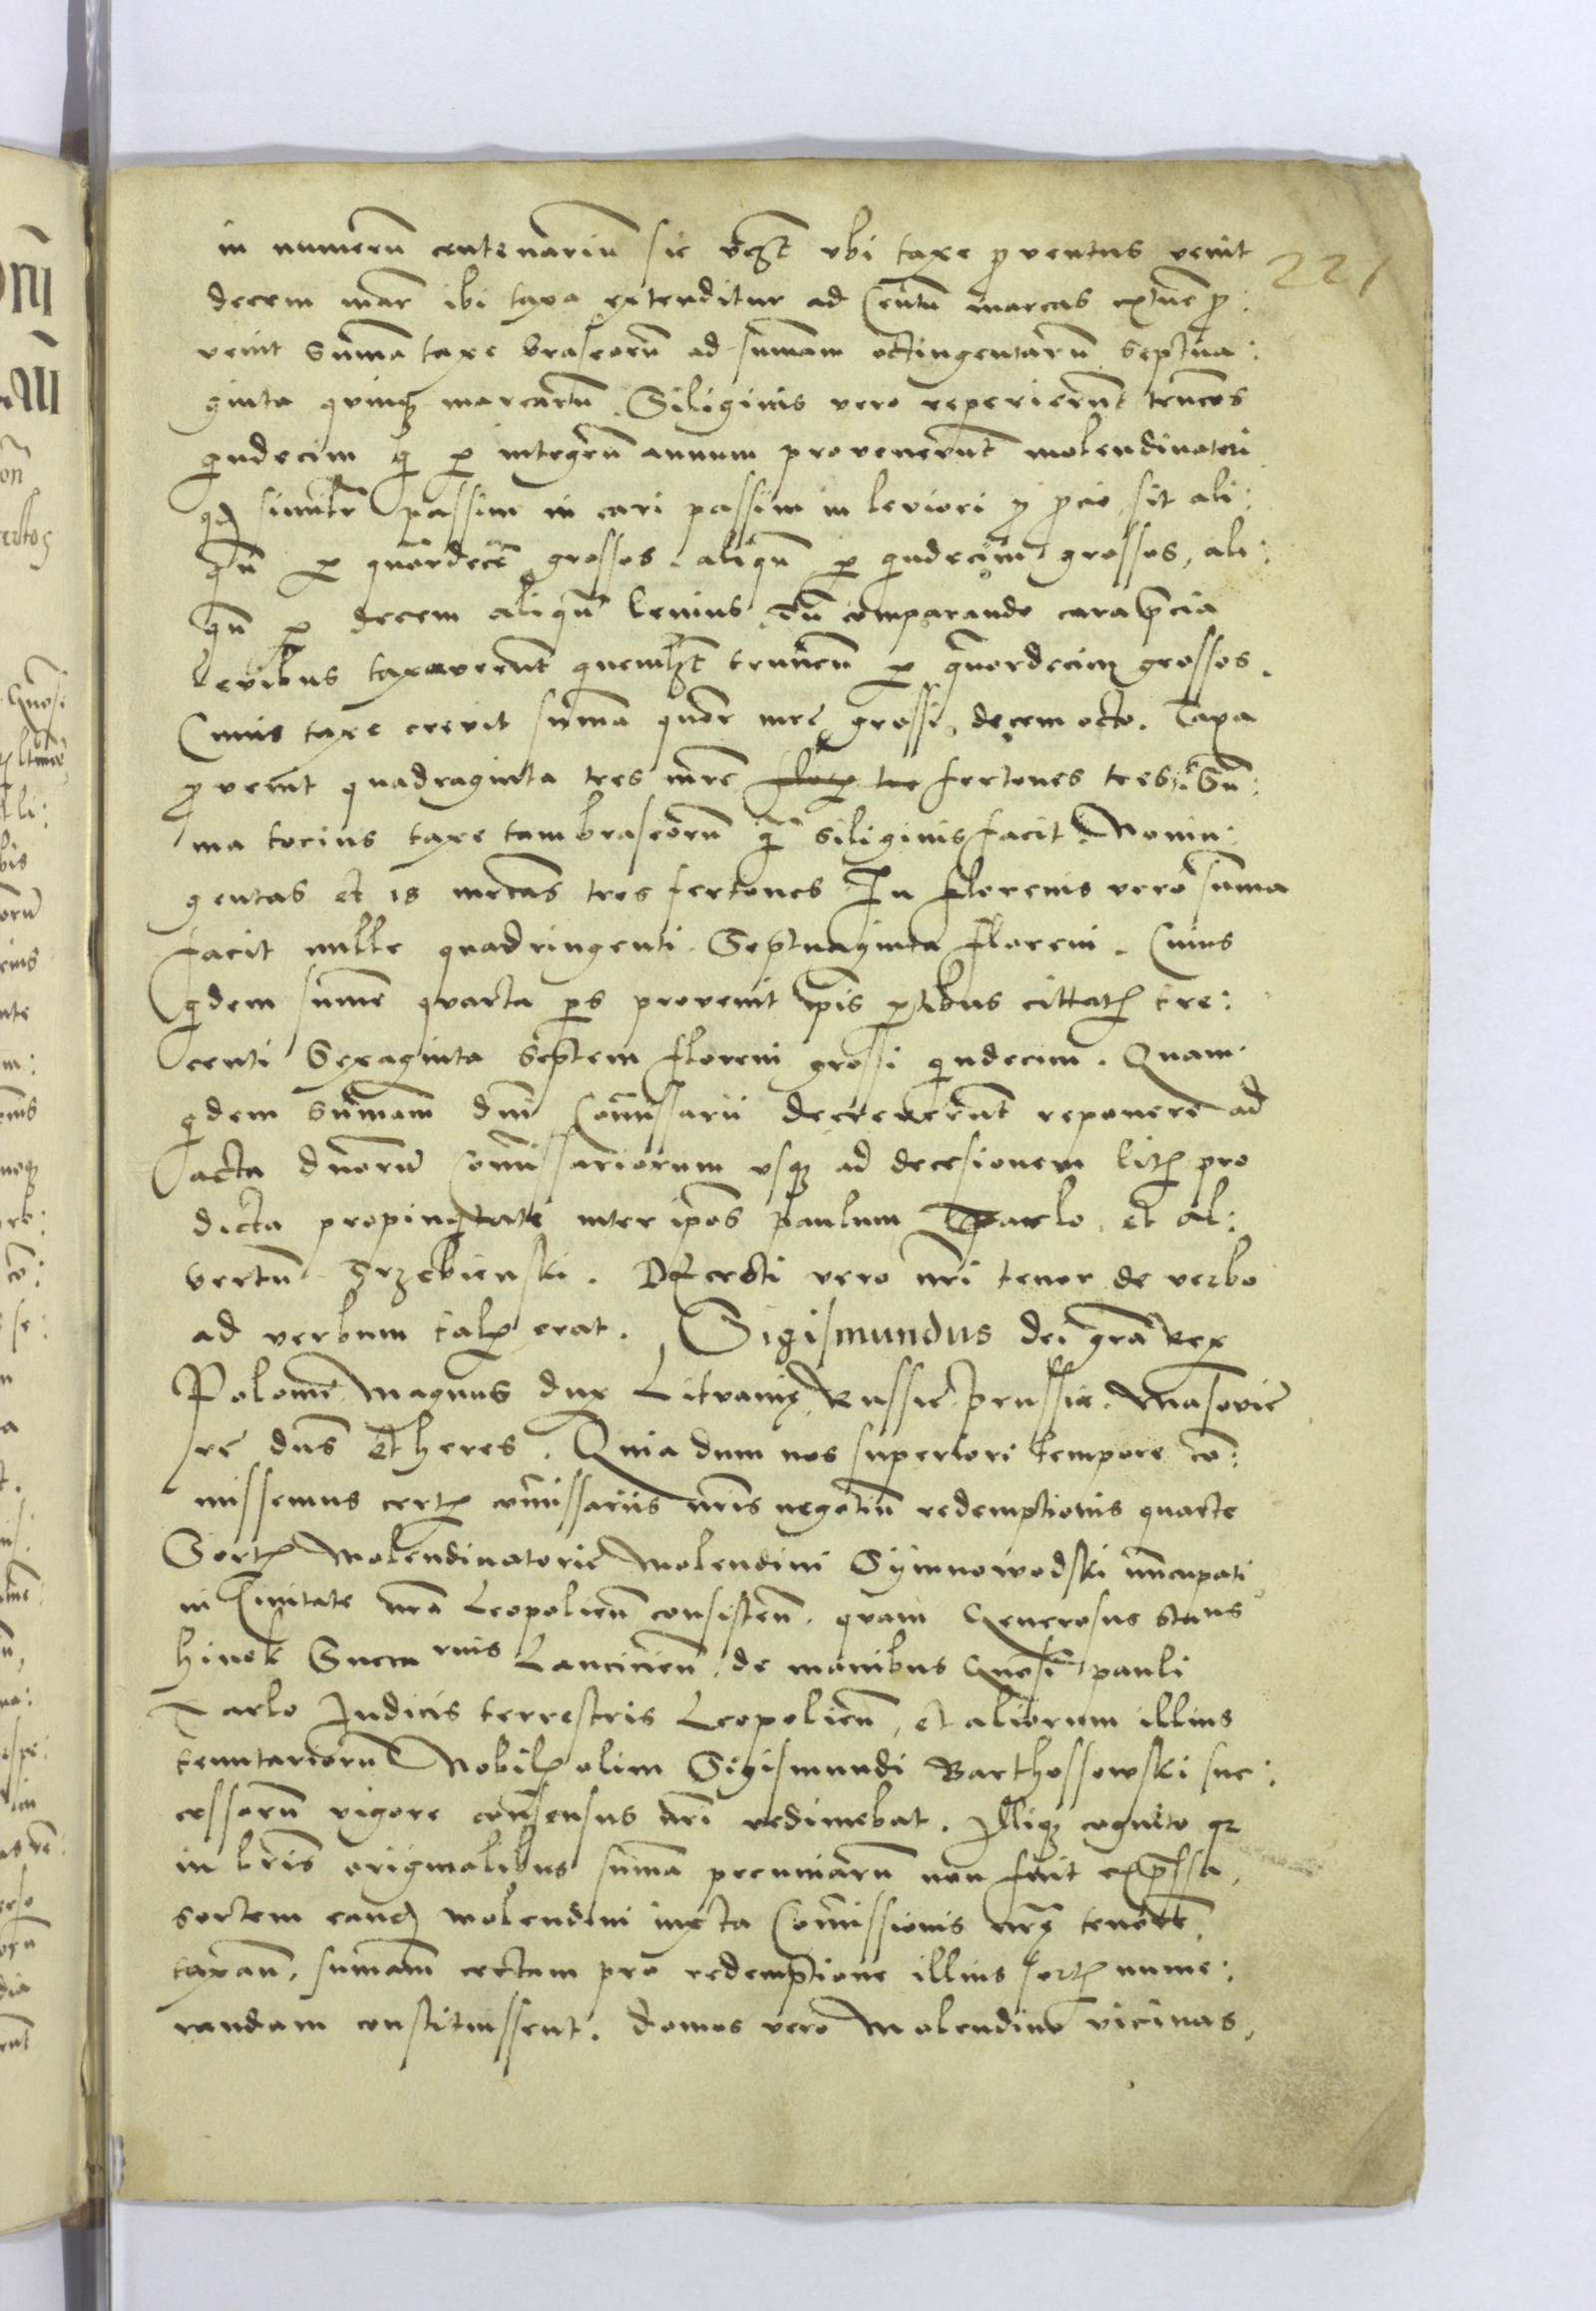 in numerũ centenariũ sic vꝫt vbi taxe ꝓventus venit
221
decem mar ibi taxa extenditur ad Centũ marcas extunc ꝓ:
venit summa taxe braseorũ ad summam octingentarũ septua:
ginta quinqꝫ marcarũ. Siliginis vero reperierũt truncos
qindecim qi ꝑ integrũ annum provenerũt molendinatori
qd similr passim in cari passim in leviori ꝓcio sit ali:
qñ ꝑ quordecẽ grossos. aliqñ ꝑ qindecim grossos, ali:
qñ ꝑ decem aliqñ levius. cũ comparando cara p̃cia
levibus taxaverũt quemlꝫt truncũ ꝑ quordecim grossos.
Cuius taxe crevit summa quor mrc̃ grossi decem octo. Taxa
ꝓvenit quadraginta tres mrc̃ fertones tres. Sũ:
ma tocius taxe tam braseorũ q̃ siliginis facit Nonin:
gentas et 18 mrcas tres fertones In florenis vero summa
facit mille quadringenti Septuaginta floreni. Cuius
qidem summe quarta ꝑs provenit ip̃is ꝑtibus cittatꝭ tre:
centi Sexaginta septem floreni grossi qindecim. Quam
qidem summam dñi Com̃issarii decreverũt reponere ad
acta dñorũ com̃issariorum vsqꝫ ad decesionem litꝭ pro
dicta propinqitate inter ip̃os paulum Tarlo et Al:
bertũ Srzebienski. Decreti vero nr̃i tenor de verbo
ad verbum talꝭ erat. Sigismundus dei gr̃a Rex
Polonie Magnus dux Litvanię Russie prussie. Masovie
rc̃ dñs et heres. Quia dum nos superiori tempore cõ:
missemus certꝭ com̃issariis nr̃is negotiũ redemptionis quarte
Sortꝭ Molendinatorie Molendini Symnowodski nũcupati
in Civitate nr̃a Leopolieñ consisteñ. quam Generosus Stans
hinek Succamrius Lancicieñ. de manibus Gñosi pauli
Tarlo Judicis terrestris Leopolieñ, et aliorum illius
tenutariorũ Nobilꝭ olim Sigismundi Barthossowski suc:
cessorũ vigore consensus nr̃i redimebat. Illiqꝫ cognito qꝛ
in lr̃is originalibus summa pecuniarũ non fuit exp̃ssa,
sortem eandꝫ molendini iuxta Com̃issionis nr̃ę tenorẽ
taxañ. summam certam pro redemptione illius sortꝭ nume:
randam constituissent. domos vero Molendino vicinas,